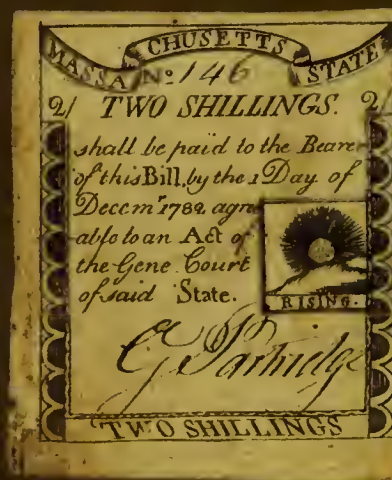 MASSACHUSETTS STATE
No. 146
2/ TWO SHILLINGS. 2/
shall be paid to the Bearer
of this Bill, by the 1 Day of
Decemr 1782 agre
able to an Act of
the Gene Court
of said State.
RISING.
G Partridge
TWO SHILLINGS